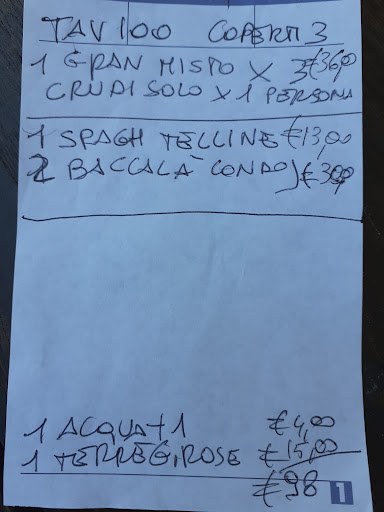 TAV 100 COPERTI 3
1 GRAN MISTO X 3 €36,00
CRUDI SOLO X 1 PERSONA
1 SPAGH TELLINE €13,00
2 BACCALÀ CONDO) €30,00
1 ACQUA + 1 €4,00
1 TERRE G. ROSE €15,00
€98
1